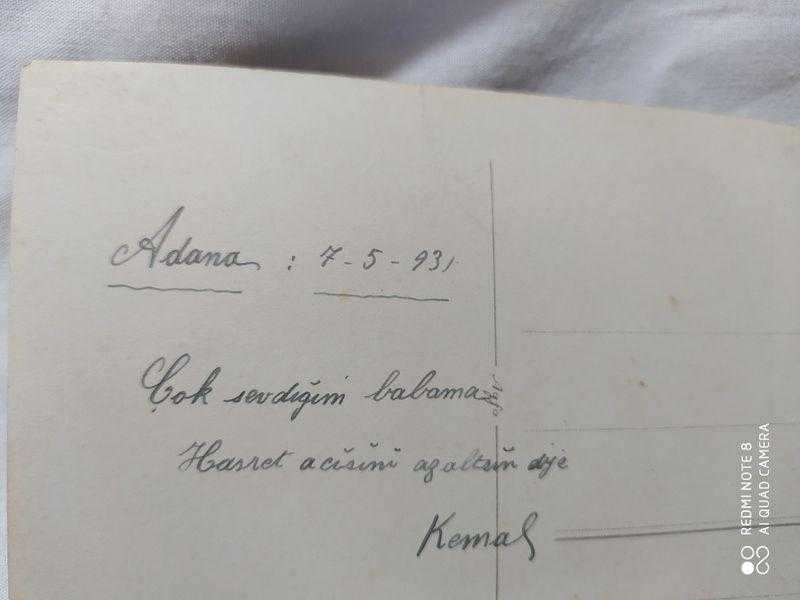 Adana : 7-5-931
Çok sevdiğim babama
Hasret acisini azaltsin diye
Kemal
REDMI NOTE 8
AI QUAD CAMERA